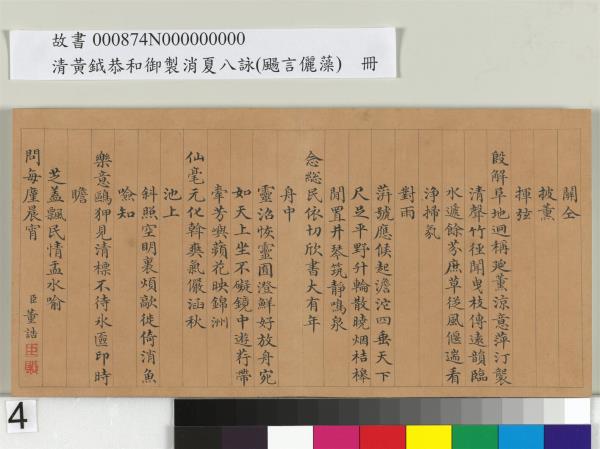 故書 000874N000000000
清黃鉞恭和御製消夏八詠(颺言儷藻) 冊
開全
披薰
揮弦
殿解阜地迴稱延薰涼意萍汀製
清聲竹徑聞曳枝傳遠韻臨
水遞餘芬庶草從風偃遄看
淨掃氛
對雨
蓱號應候起澹沱四垂天下
尺足平野升輪散曉烟桔橰
閒置井琴筑靜鳴泉
念緫民依切欣書大有年
舟中
靈沼恢靈囿澄鮮好放舟宛
如天上坐不礙鏡中遊荇帶
牽芳嶼蘋花映錦洲
仙毫元化斡爽氣儼涵秋
池上
斜照空明裏煩歊徙倚消魚
噞知
樂意鷗狎見清標不待水匳印時
瞻
芝蓋飄民情盂水喻
問每廑晨宵
臣董誥
4